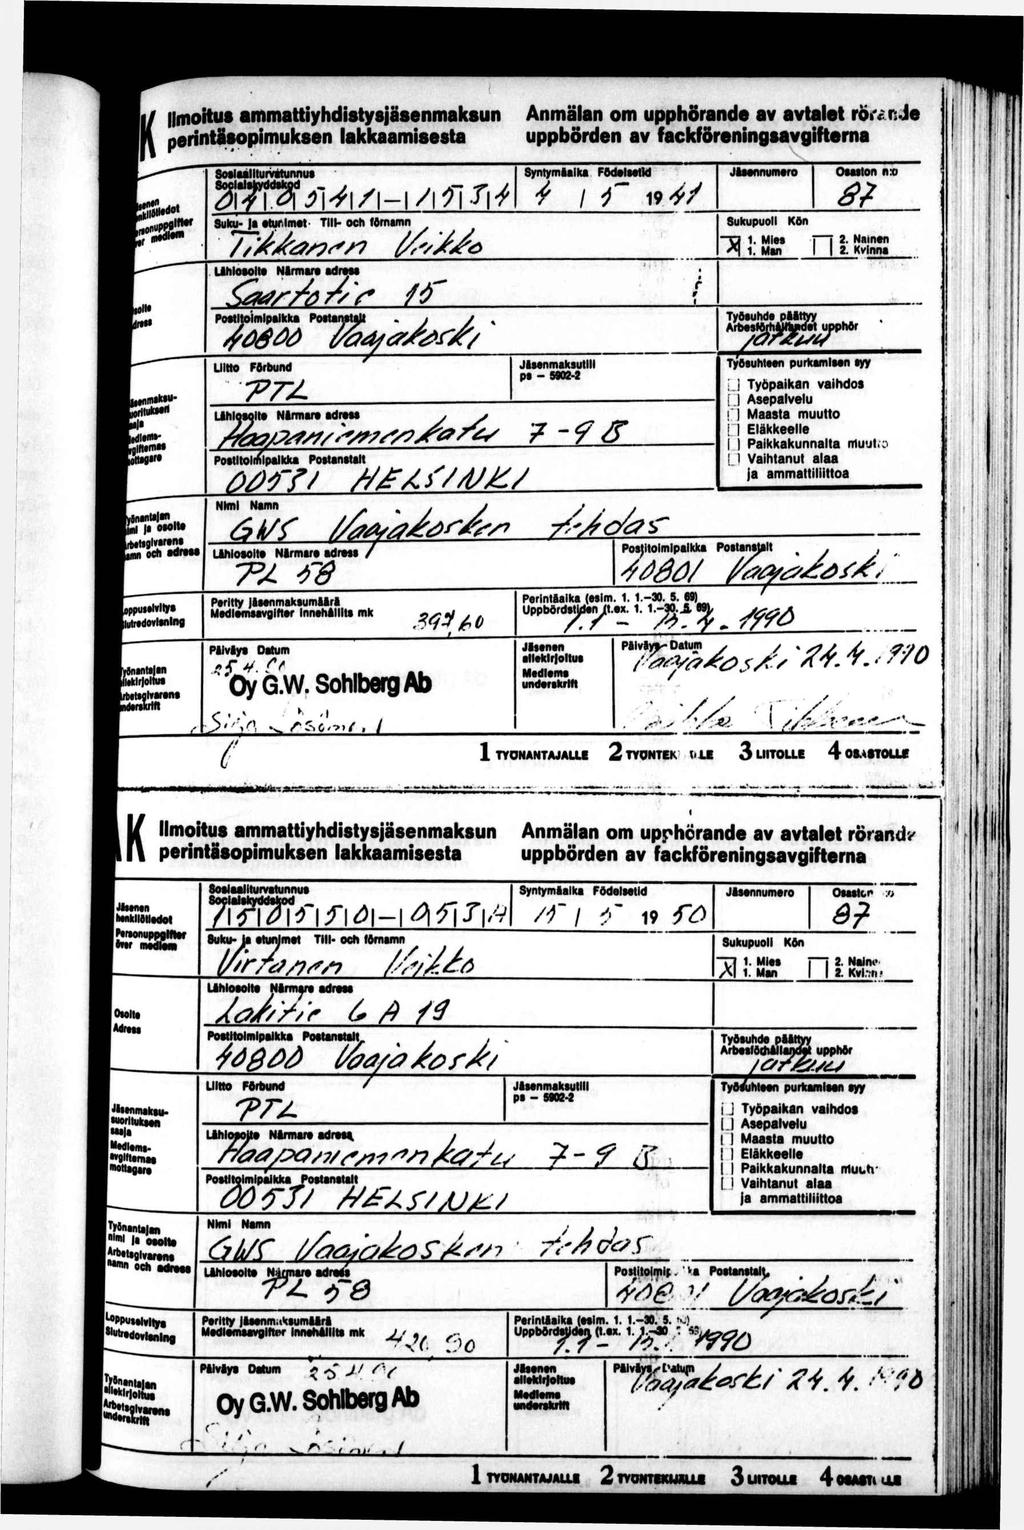 K Ilmoitus ammattiyhdistysjäsenmaksun perintäsopimuksen lakkaamisesta
Anmälan om upphörande av avtalet rörande uppbörden av fackföreningsavgifterna
Sosiaaliturvatunnus Socialskyddskod
Syntymäaika Födelsetid
Jäsennumero
Osaston n:o
4 | 5 19 41
87
Suku- ja etunimet Till- och förnamn
Sukupuoli Kön
Tikkanen Veikko
X 1. Mies 1. Man
2. Nainen 2. Kvinna
Lähiosoite Närmare adress
Saartotie 15
Postitoimipaikka Postanstalt
40800 Vaajakoski
Työsuhde päättyy Arbesförhållandet upphör
jatkuu
Liitto Förbund
PTL
Jäsenmaksutili
ps - 5902-2
Työsuhteen purkamisen syy
Työpaikan vaihdos
Asepalvelu
Maasta muutto
Eläkkeelle
Paikkakunnalta muutto
Vaihtanut alaa
ja ammattiliittoa
Lähiosoite Närmare adress
Haapaniemenkatu 7-9 B
Postitoimipaikka Postanstalt
00531 HELSINKI
Nimi Namn
GWS Vaajakosken tehdas
Lähiosoite Närmare adress
PL 58
Postitoimipaikka Postanstalt
40801 Vaajakoski
Peritty jäsenmaksumäärä
Medlemsavgifter innehållits mk
397,60
Perintäaika (esim. 1. 1.-30. 5. 69)
Uppbördstiden (t.ex. 1. 1.-30. 5. 69)
1.1 - 15.4. 1990
Päiväys Datum
Oy G.W. Sohlberg Ab
Jäsenen allekirjoitus
Medlems underskrift
Päiväys Datum
Vaajakoski 24.4.1990
Veikko Tikkanen
1 TYÖNANTAJALLE 2 3 LIITOLLE 4 OSASTOLLE
K Ilmoitus ammattiyhdistysjäsenmaksun perintäsopimuksen lakkaamisesta
Anmälan om upphörande av avtalet rörande uppbörden av fackföreningsavgifterna
Jäsenen henkilötiedot
Personuppgifter över medlem
Sosiaaliturvatunnus Socialskyddskod
Syntymäaika Födelsetid
Jäsennumero
15 | 5 19 50
87
Suku- ja etunimet Till- och förnamn
Sukupuoli Kön
Virtanen Veikko
X 1. Mies 1. Man
Osoite
Adress
Lähiosoite Närmare adress
Lakitie 6 A 19
Postitoimipaikka Postanstalt
40800 Vaajakoski
Työsuhde päättyy Arbesförhållandet upphör
jatkuu
Jäsenmaksu-
suorituksen
saaja
Medlems-
avgifternas
mottagare
Liitto Förbund
PTL
Jäsenmaksutili
ps - 5902-2
Työsuhteen purkamisen syy
Työpaikan vaihdos
Asepalvelu
Maasta muutto
Eläkkeelle
Paikkakunnalta
Vaihtanut alaa
ja ammattiliittoa
Lähiosoite Närmare adress
Haapaniemenkatu 7-9 B
Postitoimipaikka Postanstalt
00531 HELSINKI
Työnantajan
nimi ja osoite
Arbetsgivarens
namn och adress
Nimi Namn
GWS Vaajakosken tehdas
Lähiosoite Närmare adress
PL 58
Postanstalt
Vaajakoski
Loppuselvitys
Slutredovisning
Peritty jäsenmaksumäärä
Medlemsavgifter innehållits mk
Perintäaika (esim. 1. 1.-30. 5.
Uppbördstiden (t.ex. 1. 1.-30
1990
Työnantajan
allekirjoitus
Arbetsgivarens
underskrift
Päiväys Datum
Oy G.W. Sohlberg Ab
Jäsenen allekirjoitus
Medlems underskrift
Päiväys Datum
Vaajakoski 24.4.
1 TYÖNANTAJALLE 2 TYÖNTEKIJÄLLE 3 LIITOLLE 4